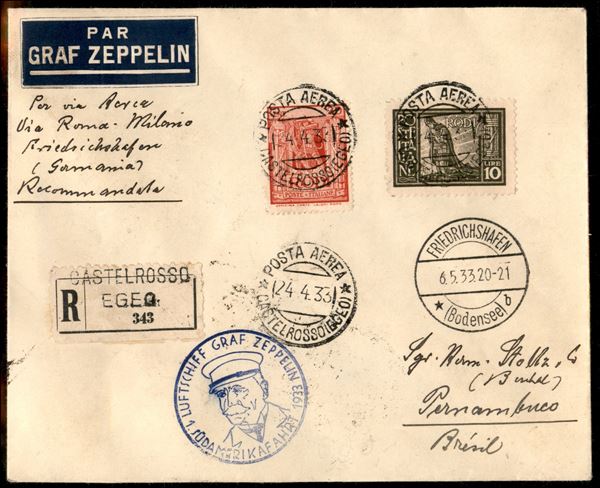 PAR
GRAF ZEPPELIN
Per via Aerea
Via Roma-Milano
Friedrichshafen
(Germania)
Recommandata
POSTA AEREA
24.4.33
CASTELROSSO (EGEO)
POSTE ITALIANE
POSTA AEREA
RODI
10
LIRE
FRIEDRICHSHAFEN
6.5.33.20-21
★ (Bodensee) b
CASTELROSSO
R
EGEO
343
POSTA AEREA
24.4.33
★ CASTELROSSO (EGEO) ★
LUFTSCHIFF GRAF ZEPPELIN
1. SÜDAMERIKAFAHRT 1933
Sgr. Herm. Stoltz &
Pernambuco
Brésil